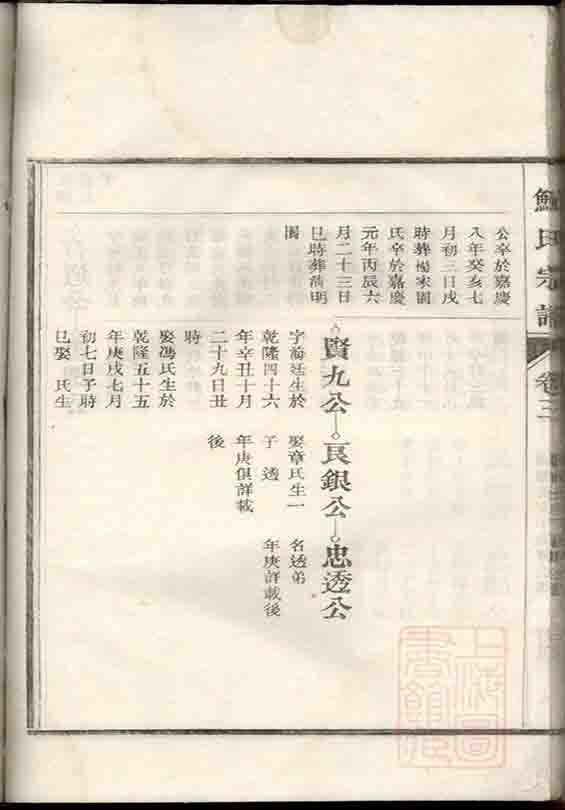 氏宗譜
卷三
公卒於嘉慶
八年癸亥七
月初三日戌
時葬楊家園
氏卒於嘉慶
元年丙辰六
月二十三日
巳時葬
園
賢九公 良銀公 忠透公
字海廷生於
乾隆四十六
年辛丑十月
二十九日丑
時
娶馮氏生於
乾隆五十五
年庚戌七月
初七日子時
已娶 氏生
娶章氏生一
子 透
年庚俱詳載
後
名透弟
年庚詳載後
上海圖
書館藏